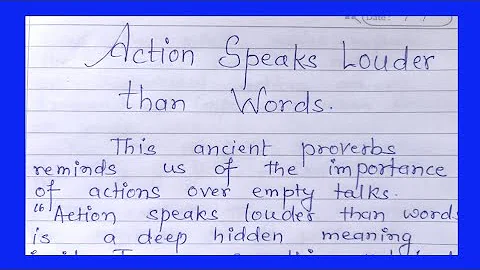 Date:
Action Speaks Louder
than Words.
This ancient proverbs
reminds us of the importance
of actions over empty talks.
"Action speaks louder than words
is a deep hidden meaning